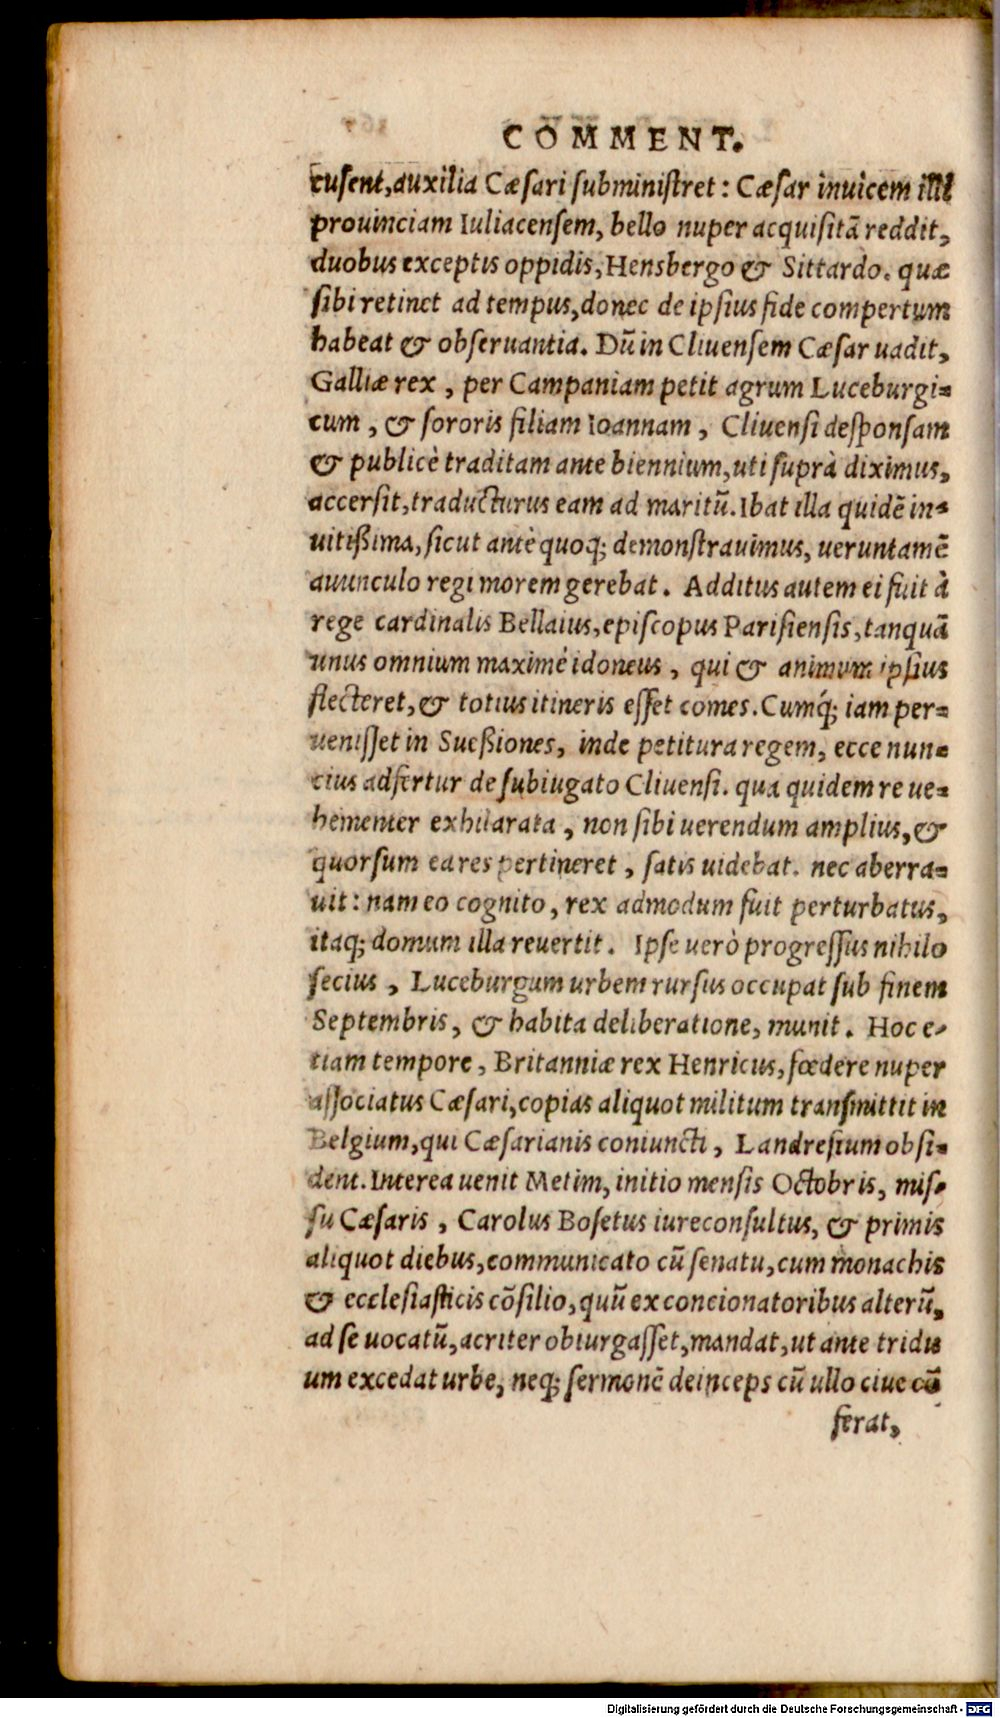 COMMENT.
cusent, auxilia Cæsari subministret : Cæsar inuicem illi
prouinciam Iuliacensem, bello nuper acquisitā reddit,
duobus exceptis oppidis, Hensbergo & Sittardo. quæ
sibi retinet ad tempus, donec de ipsius fide compertum
habeat & obseruantia. Dū in Cliuensem Cæsar uadit,
Galliæ rex, per Campaniam petit agrum Luceburgi-
cum, & sororis filiam Ioannam, Cliuensi desponsam
& publicè traditam ante biennium, uti suprà diximus,
accersit, traducturus eam ad maritū. Ibat illa quidē in-
uitißima, sicut antè quoq; demonstrauimus, ueruntamē
auunculo regi morem gerebat. Additus autem ei fuit à
rege cardinalis Bellaius, episcopus Parisiensis, tanquā
unus omnium maximè idoneus, qui & animum ipsius
flecteret, & totius itineris esset comes. Cumq́; iam per-
uenisset in Sueßiones, inde petitura regem, ecce nun-
cius adfertur de subiugato Cliuensi. qua quidem re ue-
hementer exhilarata, non sibi uerendum amplius, &
quorsum ea res pertineret, satis uidebat. nec aberra-
uit : nam eo cognito, rex admodum fuit perturbatus,
itaq; domum illa reuertit. Ipse uerò progressus nihilo
secius, Luceburgum urbem rursus occupat sub finem
Septembris, & habita deliberatione, munit. Hoc e-
tiam tempore, Britanniæ rex Henricus, fœdere nuper
associatus Cæsari, copias aliquot militum transmittit in
Belgium, qui Cæsarianis coniuncti, Landresium obsi-
dent. Interea uenit Metim, initio mensis Octobris, mis-
su Cæsaris, Carolus Bosetus iureconsultus, & primis
aliquot diebus, communicato cū senatu, cum monachis
& ecclesiasticis cōsilio, quū ex concionatoribus alterū,
ad se uocatū, acriter obiurgasset, mandat, ut ante tridu
um excedat urbe, neq; sermonē deinceps cū ullo ciue cō
ferat,
Digitalisierung gefördert durch die Deutsche Forschungsgemeinschaft - DFG